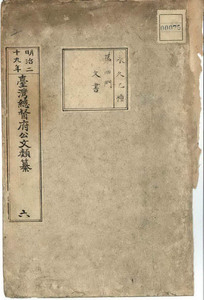 00075
永久乙種
第四門
文書
明治二
十九年
臺灣總督府公文類纂
六